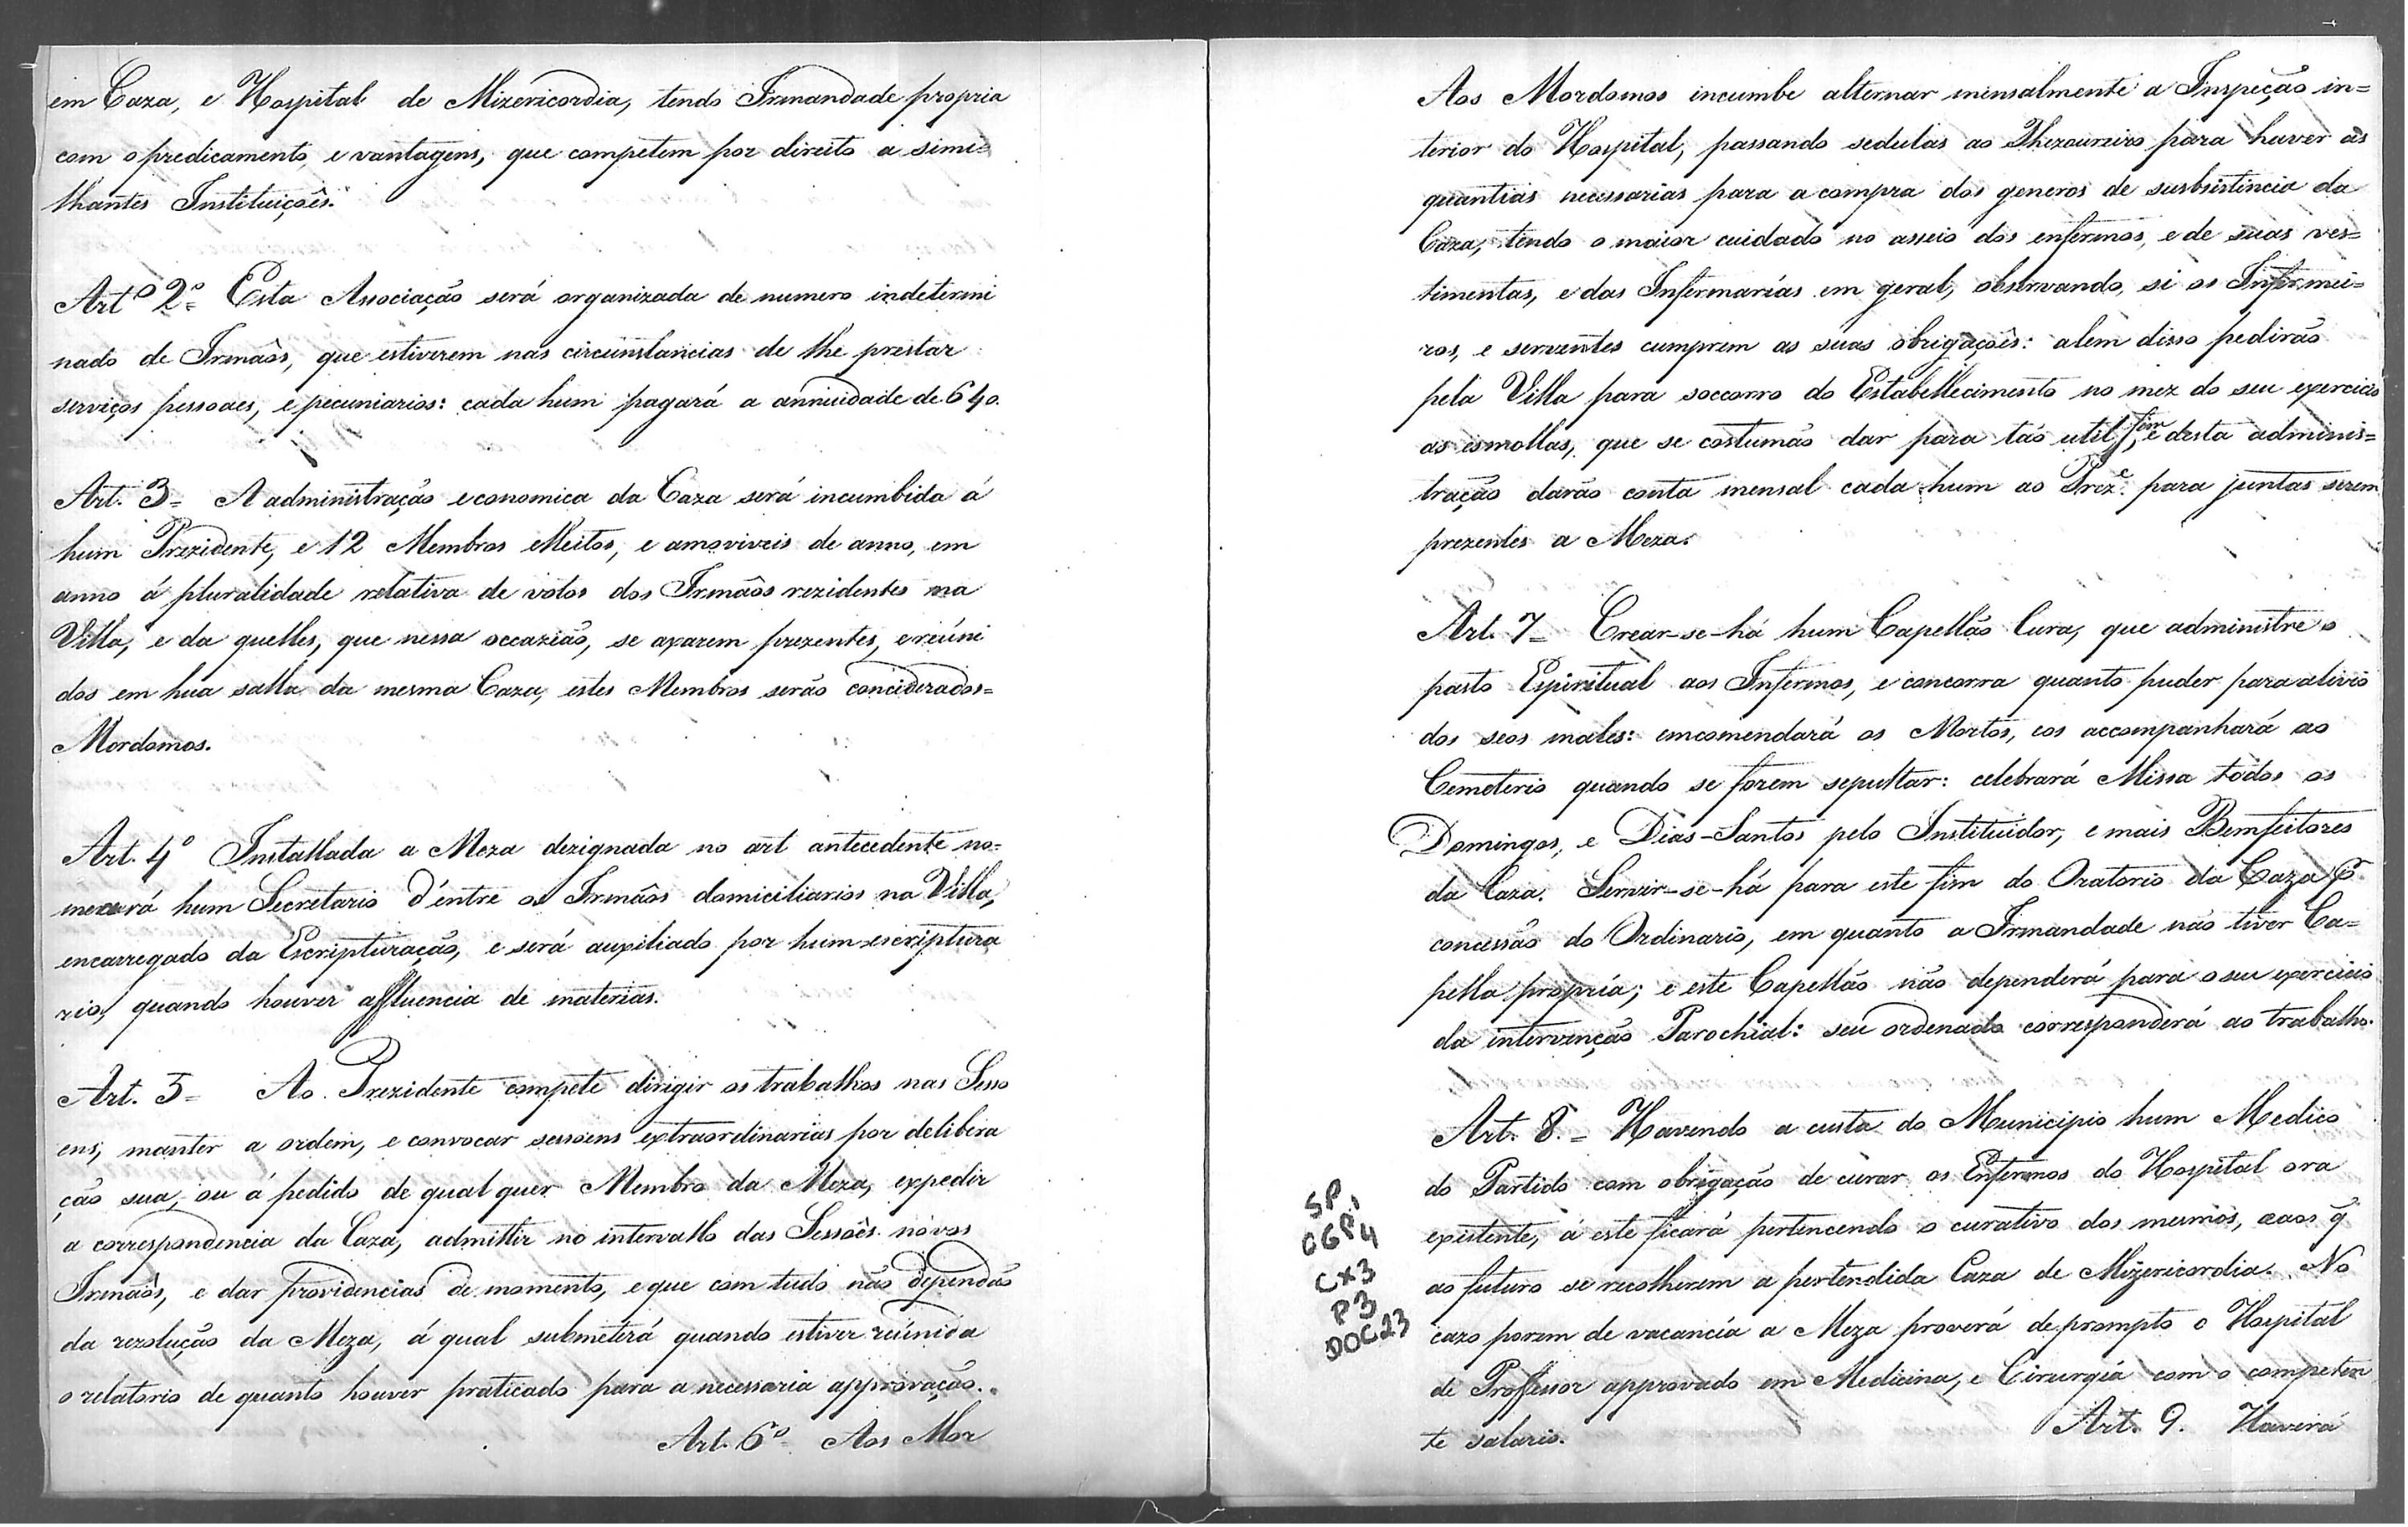 em Caza, e Hospital de Mizericordia, tendo Irmandade propria
com o predicamento, e vantagens, que competem por direito a simi=
lhantes Instituiçoês."
Artº 2º= Esta Associação será organizada de numero indetermi
nado de Irmaõs, que estiverem nas circunstancias de lhe prestar
serviços pessoaes, e pecuniarios: cada hum pagará a annuidade de 640.
Art. 3= A administração economica da Caza será incumbida á
hum Prezidente, e 12 Membros elleitos, e amoviveis de anno, em
anno á pluralidade relativa de votos dos Irmaõs rezidentes na
Villa, e da quelles, que nessa occazião, se axarem prezentes, e reúni
dos em hua salla da mesma Caza, estes Membros serão conciderados=
Mordomos.
Art. 4º Installada a Meza dezignada no art antecedente no=
meará hum Secretario d'entre os Irmaõs domiciliarios na Villa,
encarregado da Escripturação, e será auxiliado por hum escriptura
rio, quando houver affluencia de materias.
Art. 5= Ao Prezidente compete dirigir os trabalhos nas Sesso
ens, manter a ordem, e convocar sessoens extraordinarias por delibera
ção sua, ou á pedido de qual quer Membro da Meza, expedir
a correspondencia da Caza, admittir no intervallo das Sessoês nóvos
Irmaõs, e dar providencias de momento, e que com tudo não dependão
da rezolução da Meza, á qual submeterá quando estiver reúnida
o relatorio de quanto houver praticado para a necessaria approvação.
Art. 6º= Aos Mor
Aos Mordomos incumbe alternar mensalmente a Inspeção in=
terior do Hospital, passando sedulas ao Thezoureiro para haver as
quantias necessarias para a compra dos generos de susbsistencia da
Caza, tendo o maior cuidado no asseio dos enfermos, e de suas ves=
timentas, e das Infermarías em geral, observando, si os Infermei=
ros, e serventes cumprem as suas obrigaçoês: alem disso pedirão
pela Villa para soccorro do Estabellecimento no mez do seu exercicio
as esmollas, que se costumão dar para tão util fim, e desta adminis=
tração darão conta mensal cada hum ao Prezᵉ. para juntas serem
prezentes a Meza.
Art. 7= Crear-se-há hum Capellão Cura, que administre o
pasto Espiritual aos Infermos, e concorra quanto puder para alivio
dos seos males: emcomendará os Mortos, eos accompanhará ao
Cemeterio quando se forem sepultar: celebrará Missa todos os
Domingos, e Dias-Santos pelo Instituidor, e mais Bemfeitores
da Caza. Servir-se-há para este fim do Oratorio da Caza
concessão do Ordinario, em quanto a Irmandade não tiver Ca=
pella propría; e este Capellão não dependerá para o seu exercicio
da intervenção Parochial: seu ordenado corresponderá ao trabalho.
Art. 8.= Havendo a custa do Municipio hum Medico
do Partido com obrigação de curar os Enfermos do Hospital ora
existente, á este ficará pertencendo o curativo dos mesmos, eaos q̃
ao futuro se recolherem a pertendida Caza de Mizericordia. No
cazo porem de vacancía a Meza proverá de prompto o Hospital
de Professor approvado em Medicina, e Cirurgiá com o competen
te salario. Art. 9. Haverá
SP,
OGP,4
CX3
P3
DOC23